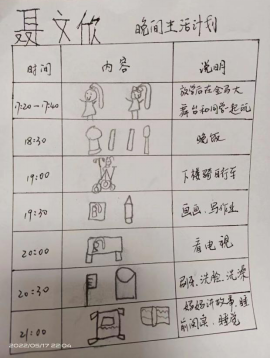 聂文欣 晚间生活计划
时间 内容 说明
17:20-17:40 放学后在金马大
舞台和同学一起玩
18:30 晚饭
19:00 下楼骑自行车
19:30 画画、写作业
20:00 看电视
20:30 刷牙、洗脸、洗澡
21:00 妈妈讲故事、睡
前阅读、睡觉
2022/05/17 22:04